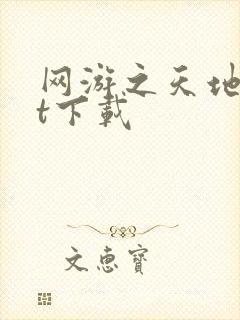 网游之天地
t下载
文惠宝